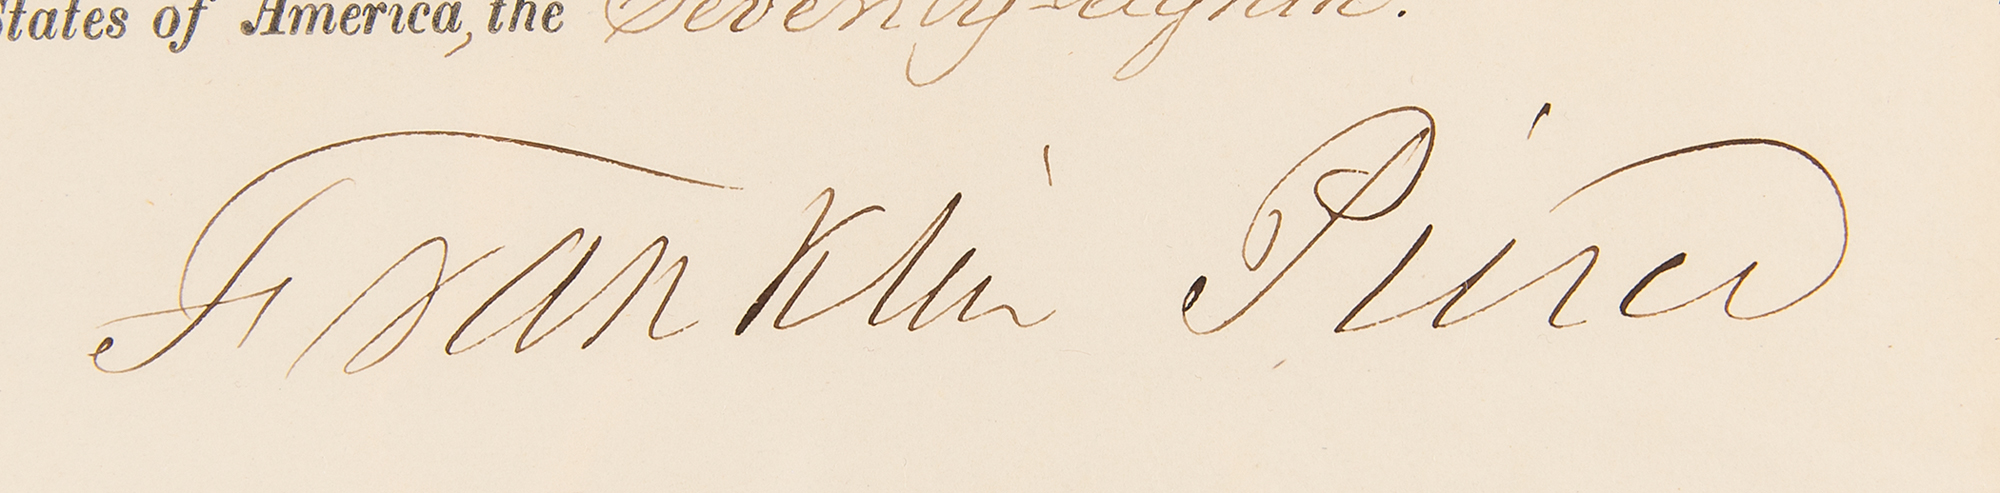 States of America, the Seventy-eighth.
Franklin Pierce